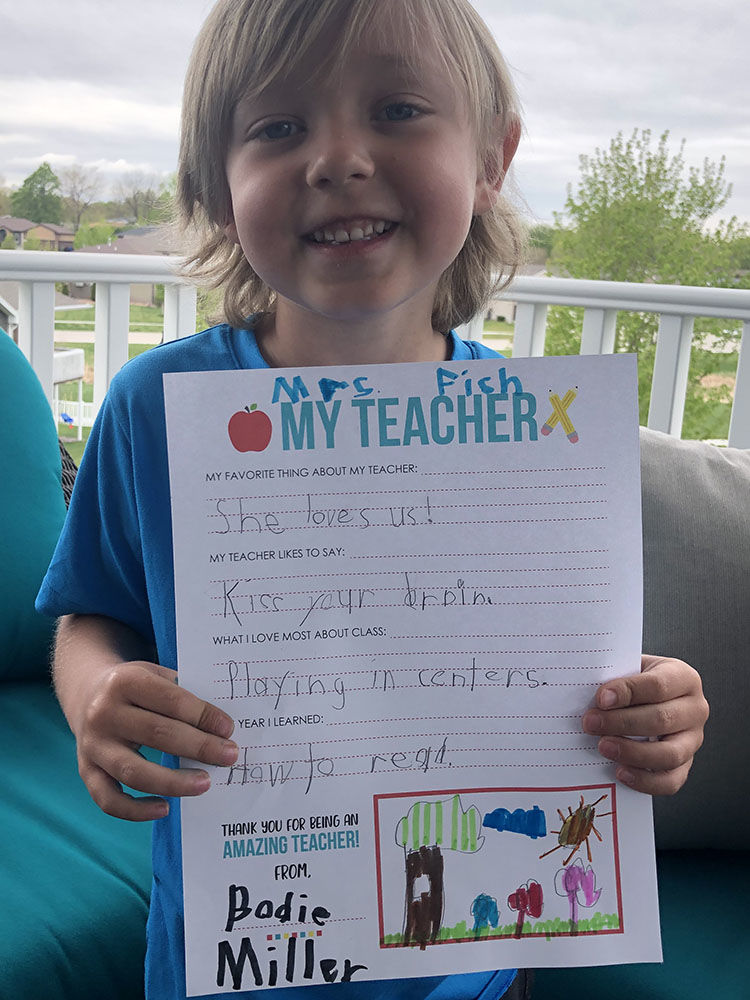 Mrs. Fish
MY TEACHER
MY FAVORITE THING ABOUT MY TEACHER:
She loves us!
MY TEACHER LIKES TO SAY:
Kiss your brain.
WHAT I LOVE MOST ABOUT CLASS:
Playing in centers.
YEAR I LEARNED:
How to read.
THANK YOU FOR BEING AN
AMAZING TEACHER!
FROM,
Bodie
Miller